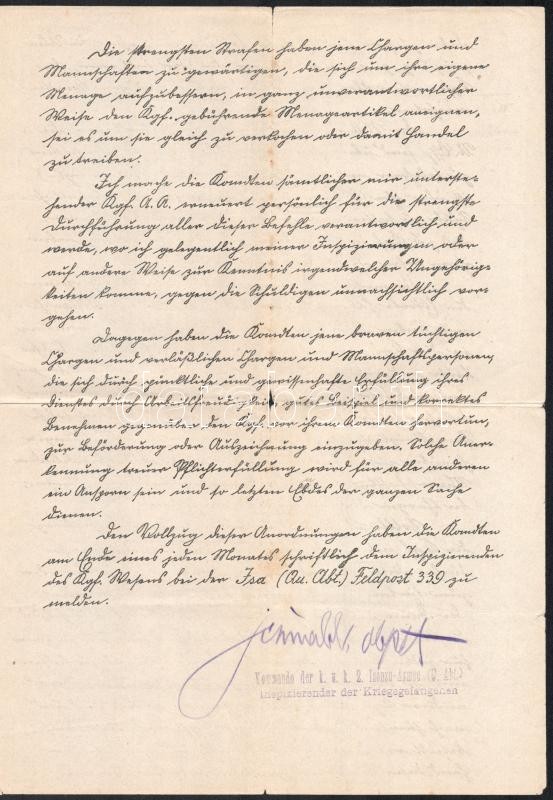 Die strengsten Strafen haben jene Chargen und
Mannschaften zu gewärtigen, die sich um ihre eigene
Menage aufzubessern, in ganz unverantwortlicher
Weise den Kgf. gebührende Menageartikel aneignen,
sei es um sie gleich zu verkochen oder damit Handel
zu treiben.
Ich mache die Komdten sämtlicher mir unterste-
hender Kgf. A. A. erneuert persönlich für die strengste
Durchführung aller dieser Befehle verantwortlich und
werde, wo ich gelegentlich meiner Inspizierungen oder
auf andere Weise zur Kenntnis irgendwelcher Ungehörig-
keiten komme, gegen die Schuldigen unnachsichtlich vor-
gehen.
Dagegen haben die Komdten jene braven tüchtigen
Chargen und verläßlichen Chargen und Mannschaftspersonen,
die sich durch pünktliche und gewissenhafte Erfüllung ihres
Dienstes durch Arbeitsfreudigkeit, gutes Beispiel und korrektes
Benehmen gegenüber den Kgf. vor ihren Komdten hervortun,
zur Beförderung oder Aufzeichnung einzugeben. Solche Aner-
kennung treuer Pflichterfüllung wird für alle anderen
ein Ansporn sein und so letzten Endes der ganzen Sache
dienen.
Den Vollzug dieser Anordnungen haben die Komdten
am Ende eines jeden Monates schriftlich dem Inspizierenden
des Kgf. Wesens bei der Isa (Qu. Abt.) Feldpost 339 zu
melden.
Obst
Kommando der k. u. k. 2. Isonzo-Armee (Q. Abt.)
Inspizierender der Kriegsgefangenen